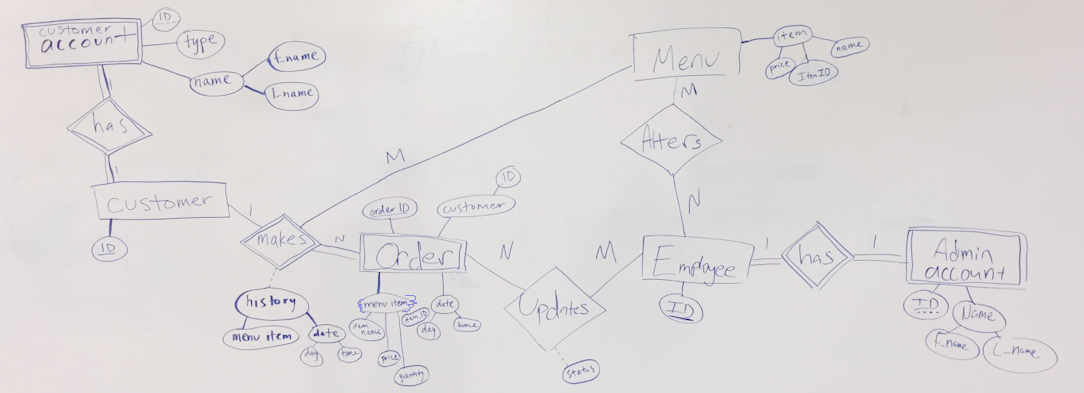 customer
account
ID
type
name
f_name
l_name
1
has
1
customer
ID
1
makes
M
N
history
menu item
date
day
time
order ID
customer
ID
Order
menu item
item name
item ID
price
quantity
date
day
time
N
Updates
M
status
Menu
item
price
Item ID
name
M
Alters
N
Employee
ID
1
has
1
Admin
account
ID
Name
F_name
L_name